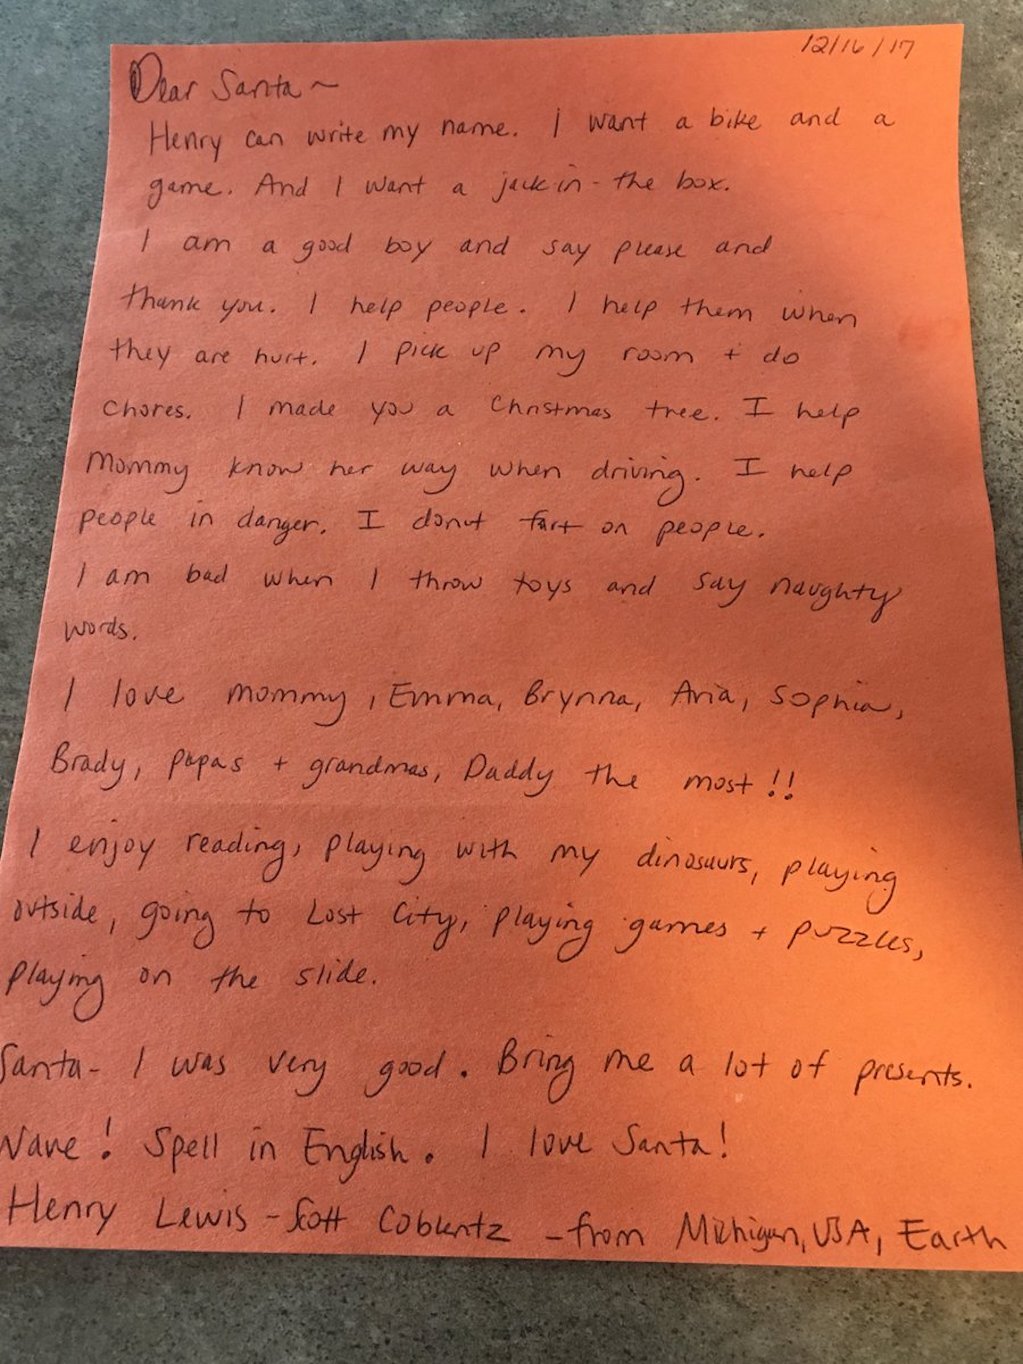 12/16/17
Dear Santa~
Henry can write my name. I want a bike and a
game. And I want a jack in - the box.
I am a good boy and say please and
thank you. I help people. I help them when
they are hurt. I pick up my room + do
chores. I made you a Christmas tree. I help
Mommy know her way when driving. I help
people in danger. I donut fart on people.
I am bad when I throw toys and say naughty
words.
I love mommy, Emma, Brynna, Aria, Sophia,
Brady, papas + grandmas, Daddy the most!!
I enjoy reading, playing with my dinosaurs, playing
outside, going to Lost City, playing games + puzzles,
playing on the slide.
Santa- I was very good. Bring me a lot of presents.
Wave! Spell in English. I love Santa!
Henry Lewis-Scott Coblentz - from Michigan, USA, Earth